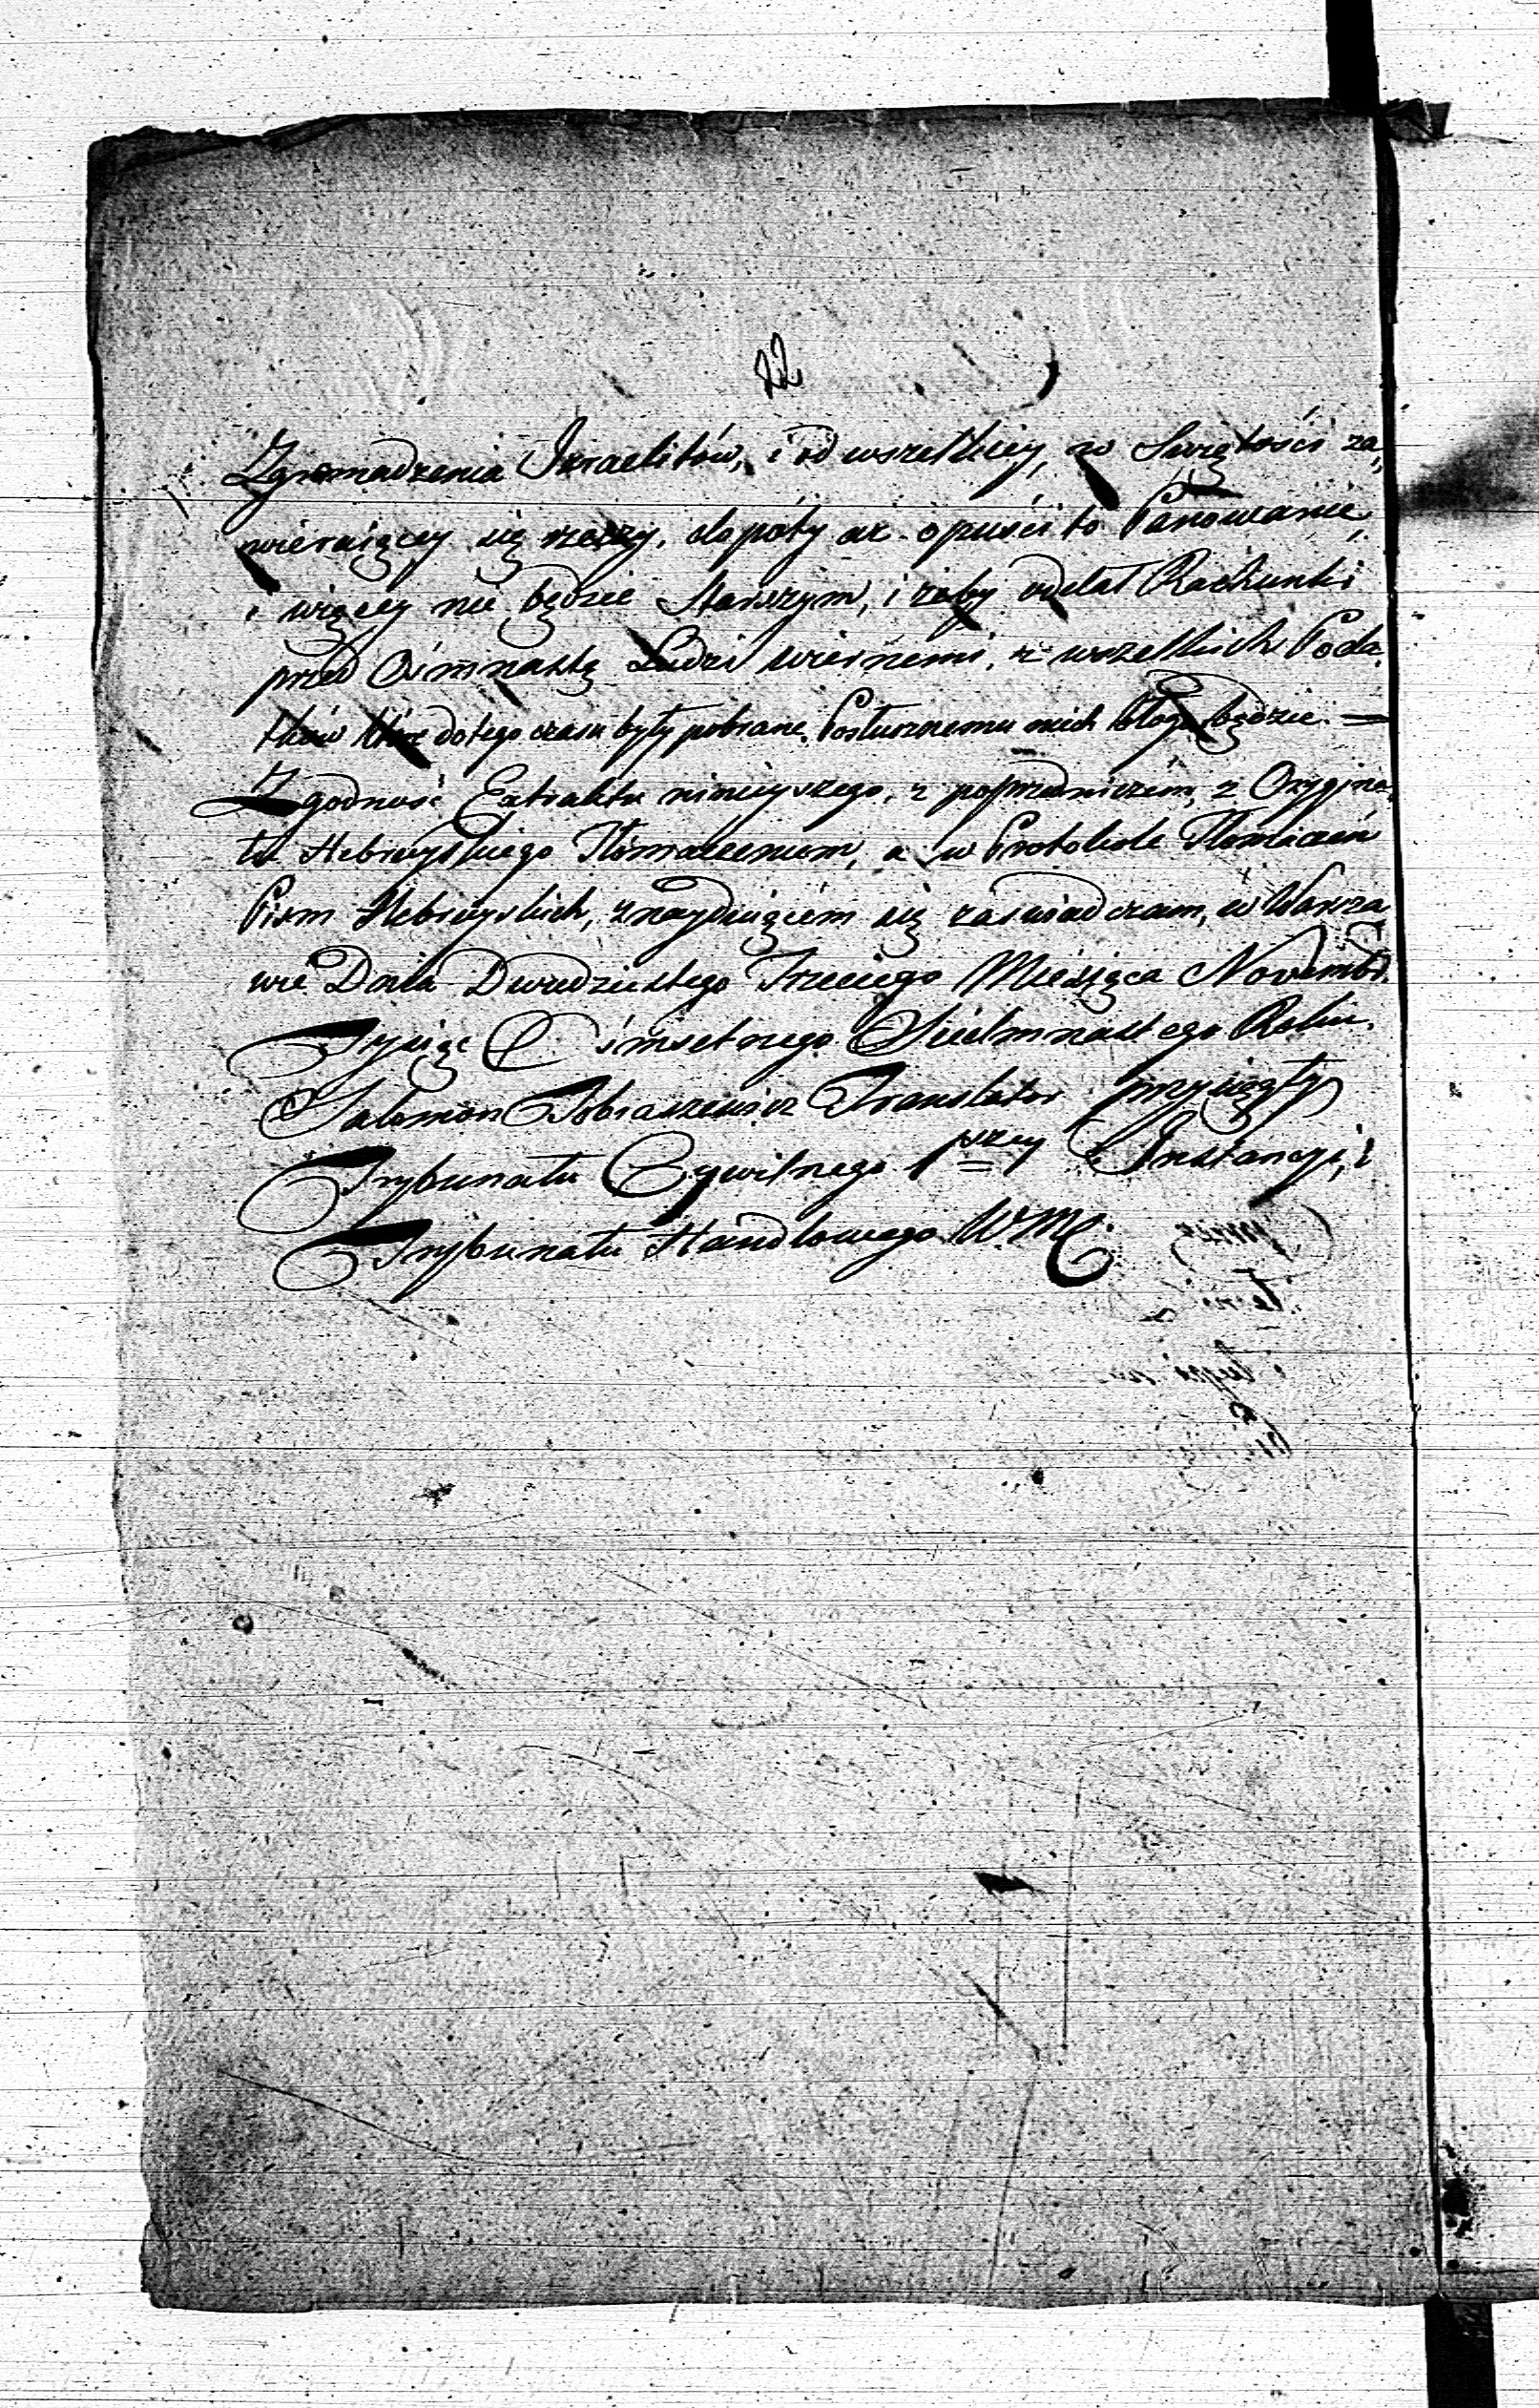 22
Zgromadzenia Izraelitów, i od wszelkiey, w Swiętości za„
wieraiącey się rzeczy, dopóty aż opuści to Panowanie,
i więcey nie będzie Starszym, i żeby oddał Rachunki
przed Ośmnastą Ludzi wiernemi, z wszelkich Poda„
tków które do tego czasu były pobrane. Posłusznemu niech błogo będzie. =
Zgodność Extraktu ninieyszego, z poprzedniczém, z Orygina„
łu Hebrayskiego Tłomaczeniem, a w Protokole Tłomaczeń
Pism Hebrayskich, znayduiącém się zaświadczam, w Warsza„
wie Dnia Dwudziestego Trzeciego Miesiąca Novembr.
Tysiąc Ośmsetnego Siedmnastego Roku.
Salomon Tobiaszewicz Translator przysięgły
Trybunału Cywilnego 1szey Instancyi, i
Trybunału Handlowego W.M.